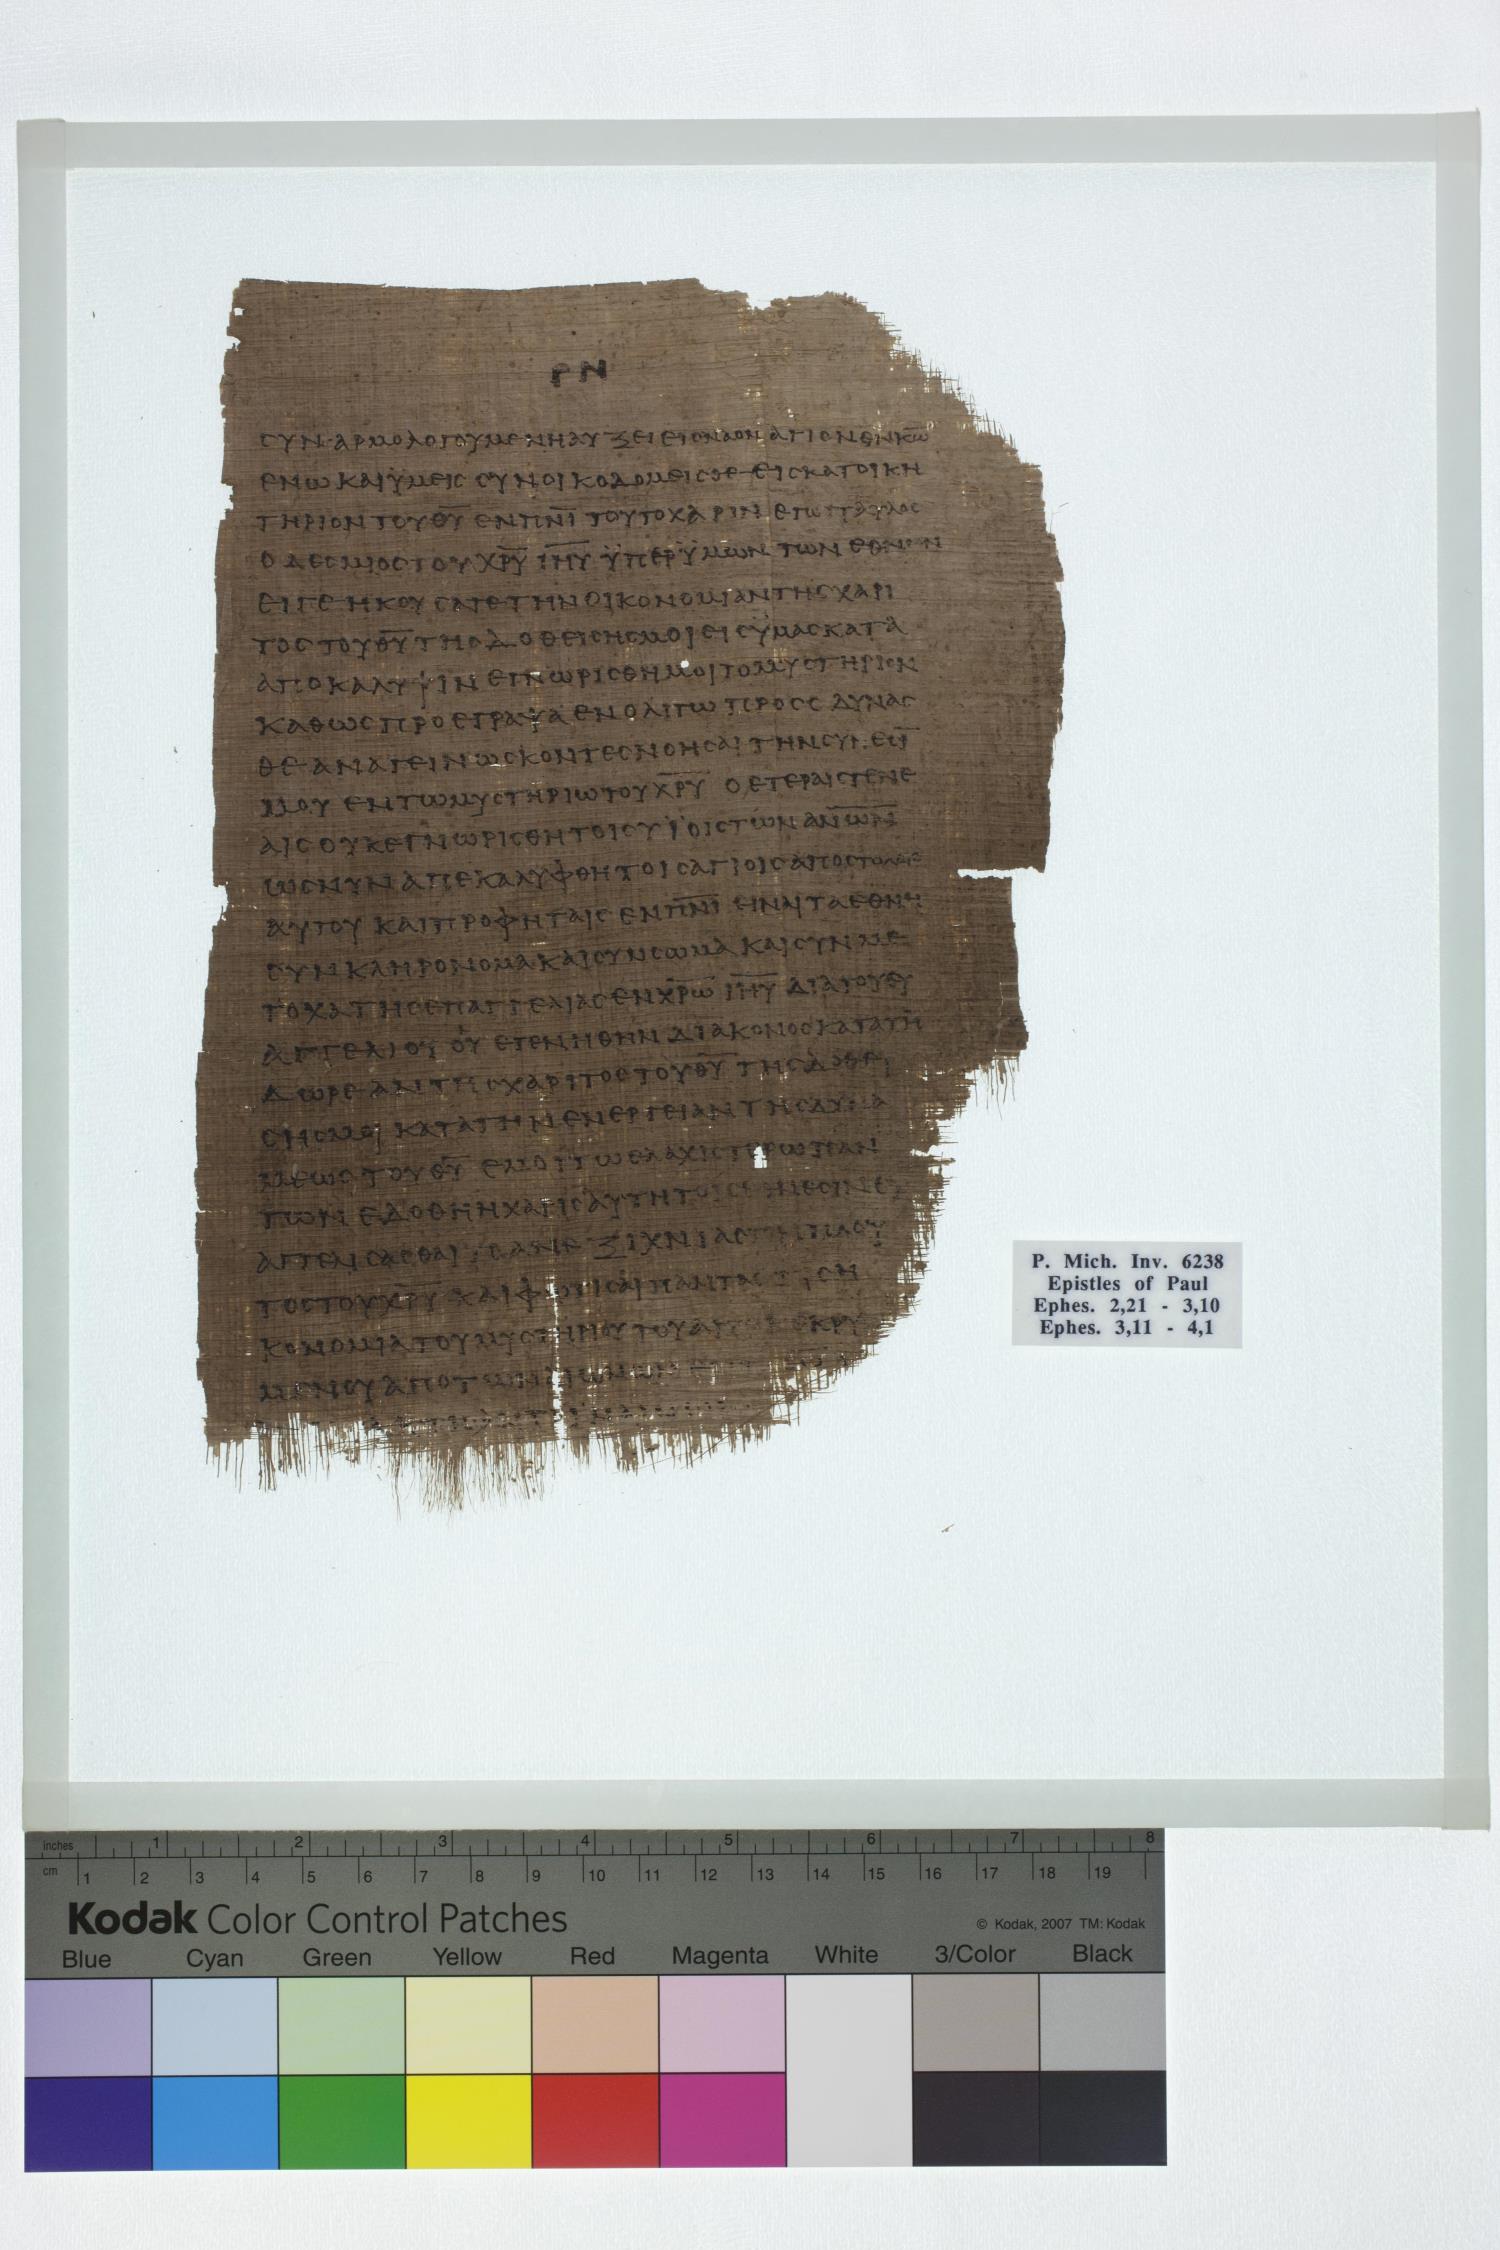 ΡΝ
ϹΥΝΑΡΜΟΛΟΓΟΥΜΕΝΗΑΥΞΕΙ ΕΙϹΝΑΟΝ ΑΓΙΟΝ ΕΝ Κ̅Ω̅
ΕΝ Ω ΚΑΙ ΫΜΕΙϹ ϹΥΝΟΙΚΟΔΟΜΕΙϹΘΕ ΕΙϹ ΚΑΤΟΙΚΗ
ΤΗΡΙΟΝ ΤΟΥ Θ̅Υ̅ ΕΝ Π̅Ν̅Ι̅ ΤΟΥΤΟ ΧΑΡΙΝ ΕΓΩ ΠΑΥΛΟϹ
Ο ΔΕϹΜΙΟϹ ΤΟΥ Χ̅Ρ̅Υ̅ Ι̅Η̅Υ̅ ΫΠΕΡ ΫΜΩΝ ΤΩΝ ΕΘΝΩΝ
ΕΙΓΕ ΗΚΟΥϹΑΤΕ ΤΗΝ ΟΙΚΟΝΟΜΙΑΝ ΤΗϹ ΧΑΡΙ
ΤΟϹ ΤΟΥ Θ̅Υ̅ ΤΗϹ ΔΟΘΕΙϹΗϹ ΜΟΙ ΕΙϹ ΫΜΑϹ ΚΑΤΑ
ΑΠΟΚΑΛΥΨΙΝ ΕΓΝΩΡΙϹΘΗ ΜΟΙ ΤΟ ΜΥϹΤΗΡΙΟΝ
ΚΑΘΩϹ ΠΡΟΕΓΡΑΨΑ ΕΝ ΟΛΙΓΩ ΠΡΟϹ Ο ΔΥΝΑϹ
ΘΕ ΑΝΑΓΕΙΝΩϹΚΟΝΤΕϹ ΝΟΗϹΑΙ ΤΗΝ ϹΥΝΕϹΙ̅
ΜΟΥ ΕΝ ΤΩ ΜΥϹΤΗΡΙΩ ΤΟΥ Χ̅Ρ̅Υ̅ Ο ΕΤΕΡΑΙϹ ΓΕΝΕ
ΑΙϹ ΟΥΚ ΕΓΝΩΡΙϹΘΗ ΤΟΙϹ ΥΪΟΙϹ ΤΩΝ Α̅Ν̅Ω̅Ν̅
ΩϹ ΝΥΝ ΑΠΕΚΑΛΥΦΘΗ ΤΟΙϹ ΑΓΙΟΙϹ ΑΠΟϹΤΟΛΟΙϹ
ΑΥΤΟΥ ΚΑΙ ΠΡΟΦΗΤΑΙϹ ΕΝ Π̅Ν̅Ι̅ ΕΙΝΑΙ ΤΑ ΕΘΝΗ
ϹΥΝΚΛΗΡΟΝΟΜΑ ΚΑΙ ϹΥΝϹΩΜΑ ΚΑΙ ϹΥΝΜΕ
ΤΟΧΑ ΤΗϹ ΕΠΑΓΓΕΛΙΑϹ ΕΝ Χ̅Ρ̅Ω̅ Ι̅Η̅Υ̅ ΔΙΑ ΤΟΥ ΕΥ
ΑΓΓΕΛΙΟΥ ΟΥ ΕΓΕΝΗΘΗΝ ΔΙΑΚΟΝΟϹ ΚΑΤΑ ΤΗ
ΔΩΡΕΑΝ ΤΗϹ ΧΑΡΙΤΟϹ ΤΟΥ Θ̅Υ̅ ΤΗϹ ΔΟΘΕΙ
ϹΗϹ ΜΟΙ ΚΑΤΑ ΤΗΝ ΕΝΕΡΓΕΙΑΝ ΤΗϹ ΔΥΝΑ
ΜΕΩϹ ΤΟΥ Θ̅Υ̅ ΕΜΟΙ ΤΩ ΕΛΑΧΙϹΤΕΡΩ ΠΑΝ
ΤΩΝ ΕΔΟΘΗ Η ΧΑΡΙϹ ΑΥΤΗ ΤΟΙϹ ΕΘΝΕϹΙΝ ΕΥ
ΑΓΓΕΛΙϹΑϹΘΑΙ ΤΟ ΑΝΕΞΙΧΝΙΑϹΤΟΝ ΠΛΟΥ
ΤΟϹ ΤΟΥ Χ̅Ρ̅Υ̅ ΚΑΙ ΦΩΤΙϹΑΙ ΠΑΝΤΑϹ
ΚΟΝΟΜΙΑ ΤΟΥ ΜΥϹΤΗΡΙΟΥ ΤΟΥ ΑΠΟΚΕΚΡΥ
ΜΕΝΟΥ ΑΠΟ ΤΩΝ ΑΙΩΝΩΝ
P. Mich. Inv. 6238
Epistles of Paul
Ephes. 2,21 - 3,10
Ephes. 3,11 - 4,1
inches 1 2 3 4 5 6 7 8
cm 1 2 3 4 5 6 7 8 9 10 11 12 13 14 15 16 17 18 19
Kodak Color Control Patches © Kodak, 2007 TM: Kodak
Blue Cyan Green Yellow Red Magenta White 3/Color Black